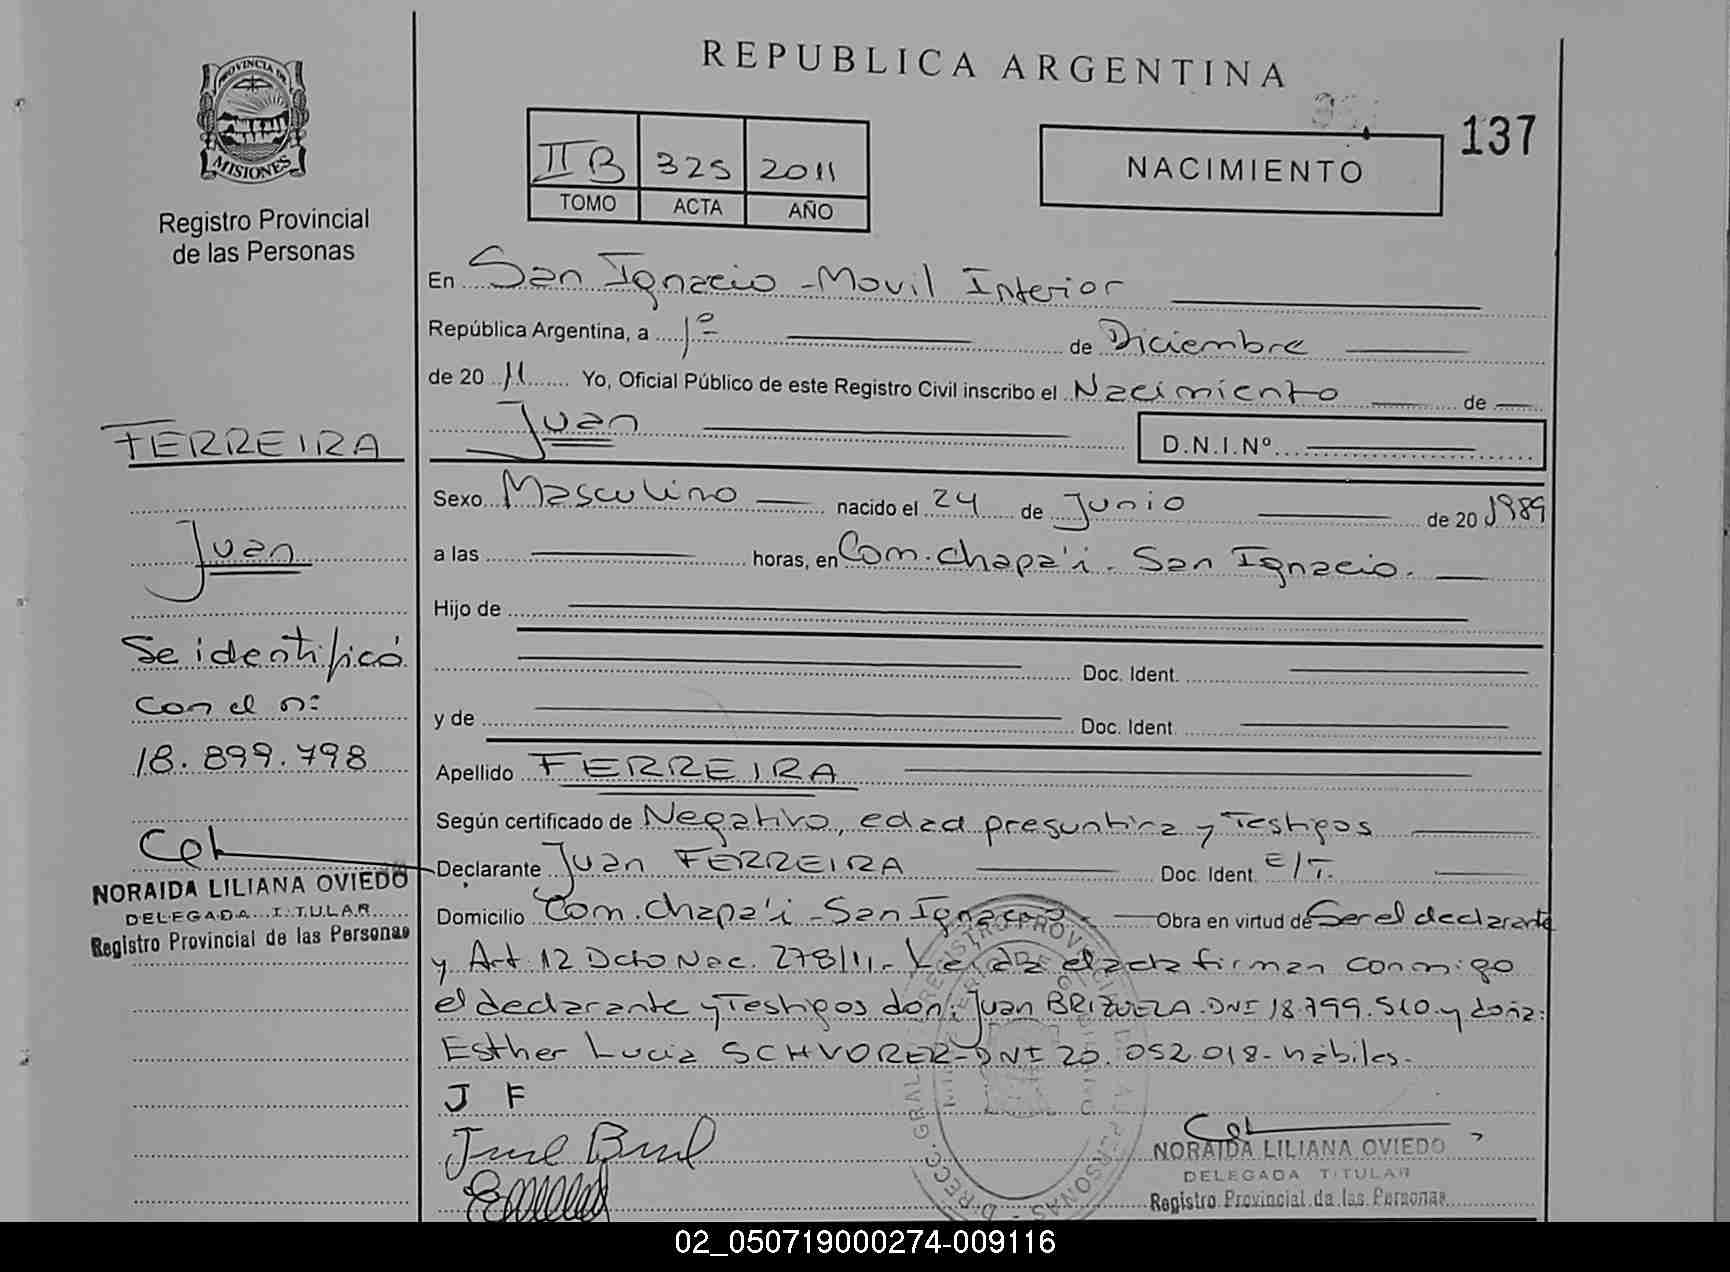 REPUBLICA ARGENTINA
PROVINCIA DE
MISIONES
Registro Provincial
de las Personas
II B 325 2011
TOMO ACTA AÑO
NACIMIENTO
137
En San Ignacio - Movil Interior
República Argentina, a 1º de Diciembre
de 20 11 Yo, Oficial Público de este Registro Civil inscribo el Nacimiento de
Juan D.N.I.Nº
Sexo Masculino nacido el 24 de Junio de 20 1989
a las horas, en Com. Chapa'i - San Ignacio.
Hijo de
Doc. Ident.
y de Doc. Ident.
Apellido FERREIRA
Según certificado de Negativo, edad presuntiva y Testigos
Declarante Juan FERREIRA Doc. Ident. E/T.
Domicilio Com. Chapa'i - San Ignacio - Obra en virtud de Ser el declarante
y Art. 12 Dcto Nac. 278/11.- Leída el acta firman conmigo
el declarante y Testigos don: Juan BRIZUELA. DNI 18.799.510 y doña:
Esther Lucia SCHVORER - DNI 20.052.018 - hábiles.
J F
NORAIDA LILIANA OVIEDO
DELEGADA TITULAR
Registro Provincial de las Personas
FERREIRA
Juan
Se identificó
con el nº
18.899.798
NORAIDA LILIANA OVIEDO
DELEGADA TITULAR
Registro Provincial de las Personas
02_050719000274-009116